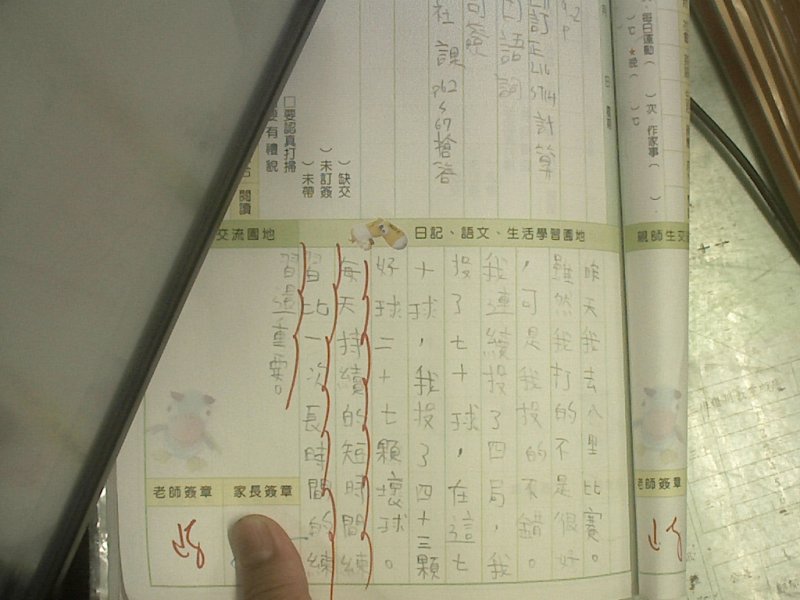 每日運動(
)次 作家事(
)℃ ★晚(
)℃
訂正L16
S714計算
口語詞
社 課 p62
567搶答
□要認真打掃
有禮貌
)缺交
)未訂簽
)未帶
閱讀
交流園地
日記、語文、生活學習園地
親師生交
昨天我去八里比賽。
雖然我打的不是很好
,可是我投的不錯。
我連續投了四局,我
投了七十球,在這七
十球,我投了四十三顆
好球二十七顆壞球。
每天持續的短時間練
習比一次長時間的練
習還重要。
老師簽章
家長簽章
老師簽章